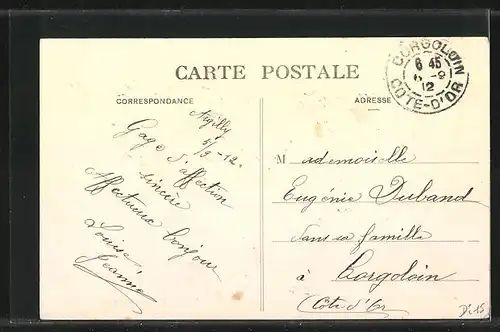 CARTE POSTALE
CORRESPONDANCE
ADRESSE
CORGOLOIN
6 45
6 -9
12
COTE-D'OR
5/9-12.
Gage d'affection
sincère
Affectueux bonjour
Louise
Jeanne
Mademoiselle
Eugénie Duband
dans sa famille
à Corgoloin
(Côte d'Or